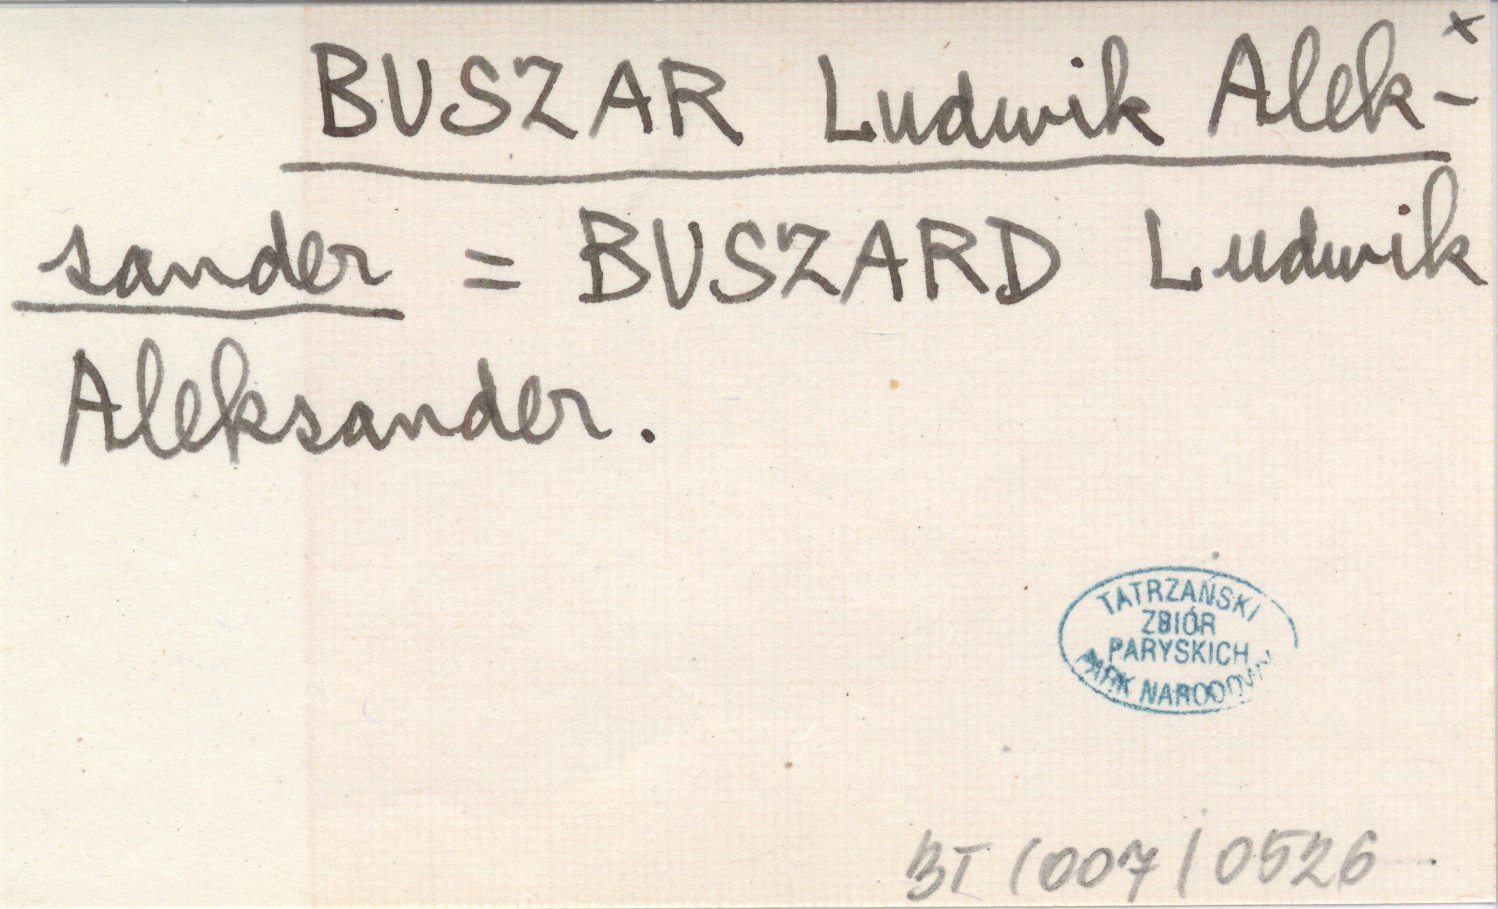 x
BUSZAR Ludwik Alek-
sander = BUSZARD Ludwik
Aleksander.
TATRZAŃSKI
ZBIÓR
PARYSKICH
PARK NARODOWY
BI/007/0526